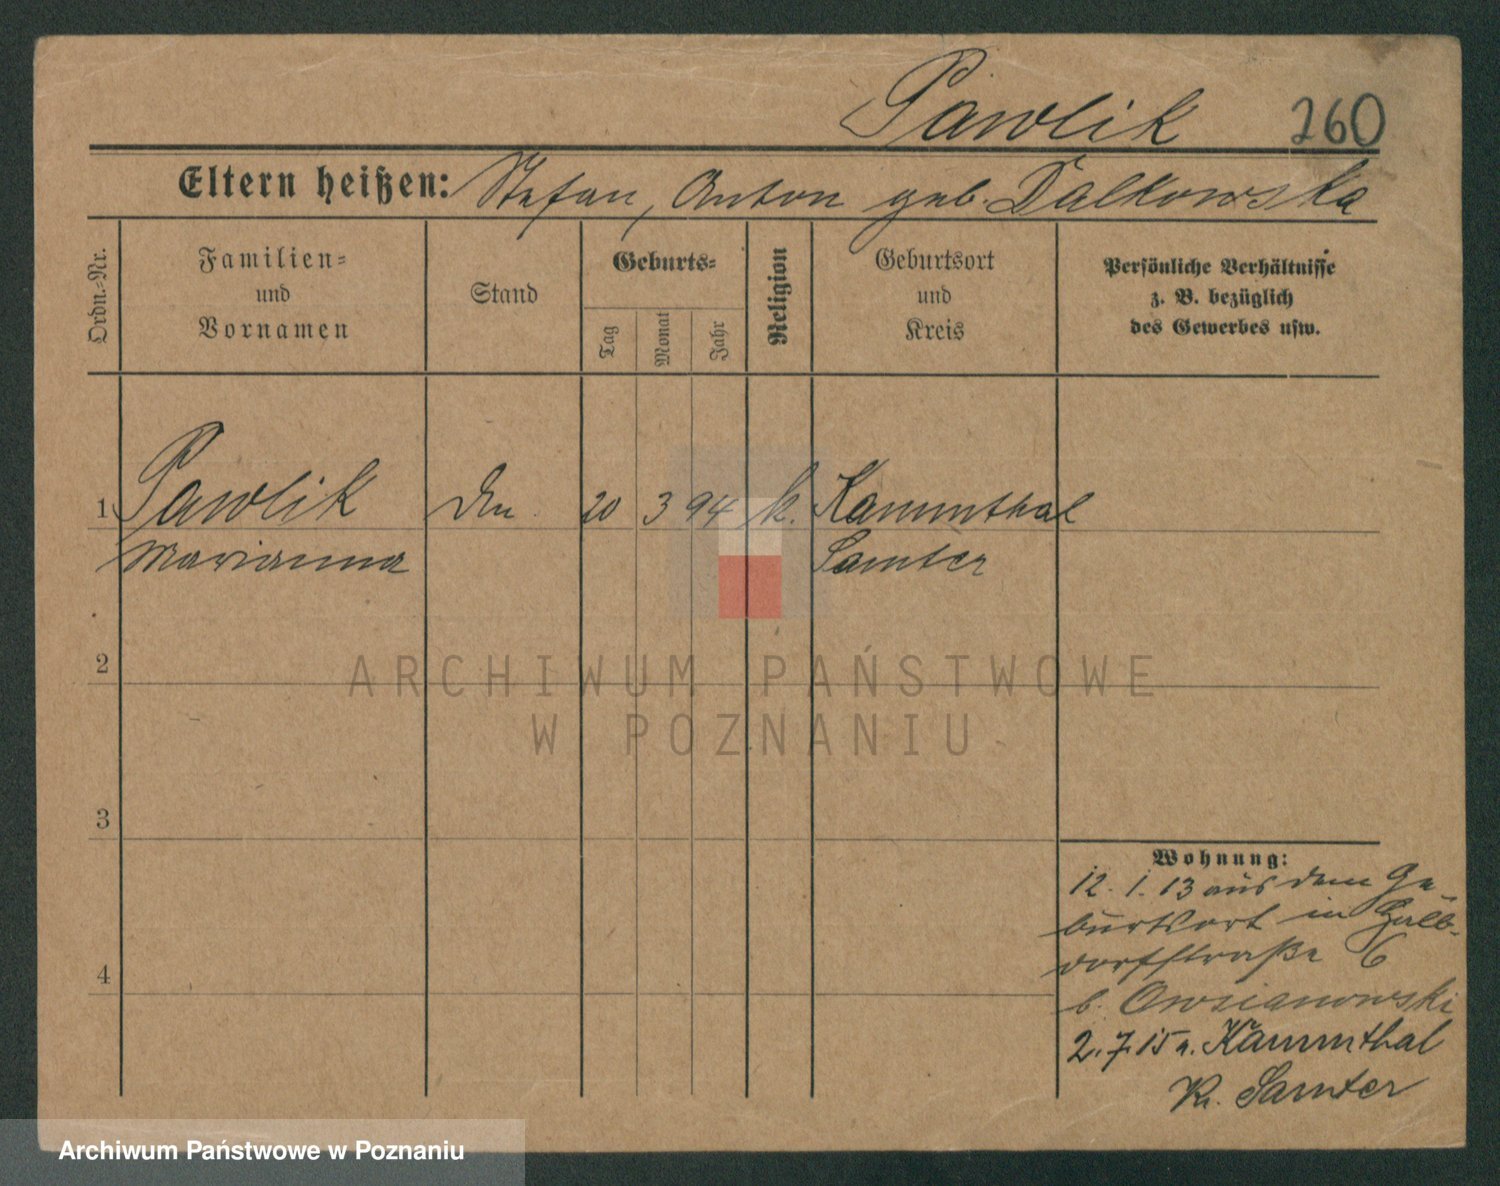 Pawlik 260
Eltern heißen: Stefan, Anton geb. Dalkowska
Ordn.-Nr.
Familien-
und
Vornamen
Stand
Geburts-
Tag
Monat
Jahr
Religion
Geburtsort
und
Kreis
Persönliche Verhältnisse
z. B. bezüglich
des Gewerbes usw.
1 Pawlik 20 3 94 k. Kammthal
Marianna Samter
2
ARCHIWUM PAŃSTWOWE
W POZNANIU
3
Wohnung:
12. 1. 13 aus dem Ge-
burtsort in
dorfstraße 6
b. Owsianowski
4
2. 7. 15 n. Kammthal
Kr. Samter
Archiwum Państwowe w Poznaniu